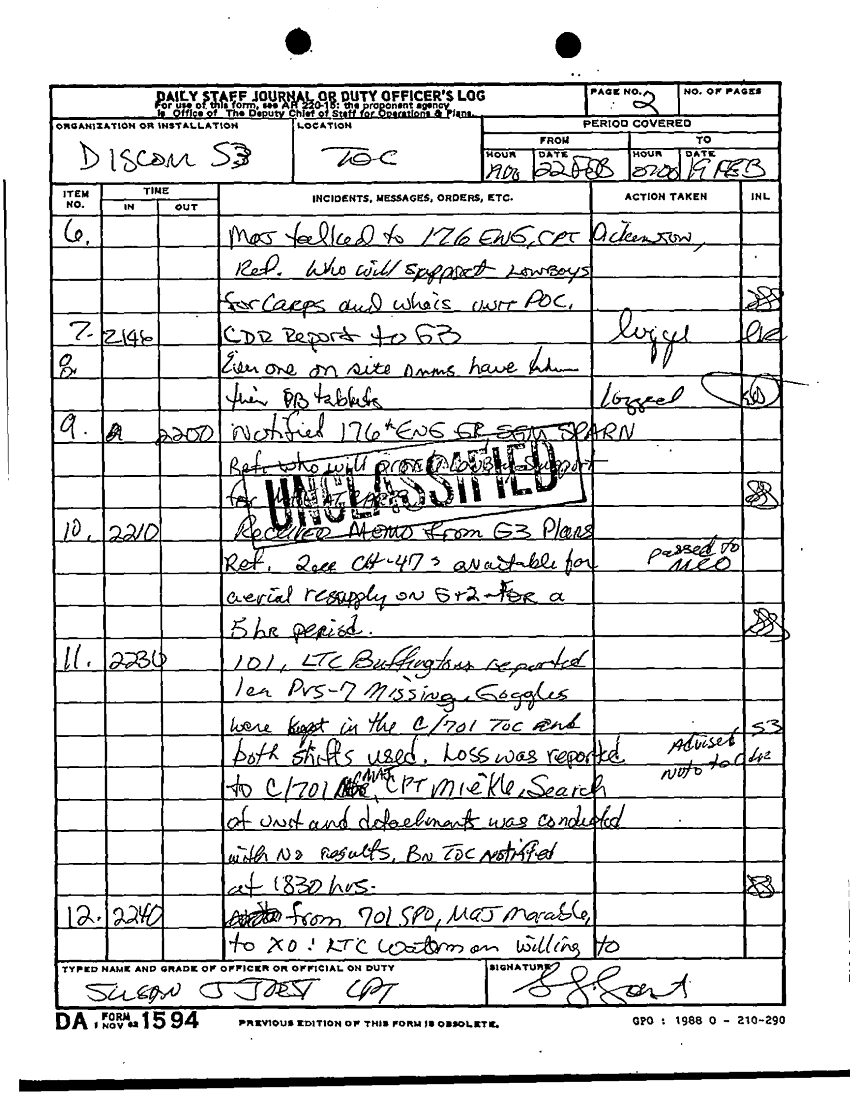 DAILY STAFF JOURNAL OR DUTY OFFICER'S LOG
For use of this form, see AR 220-15; the proponent agency
is Office of The Deputy Chief of Staff for Operations & Plans.
PAGE NO. 2
NO. OF PAGES
ORGANIZATION OR INSTALLATION
DISCOM S3
LOCATION
TOC
PERIOD COVERED
FROM
TO
HOUR
DATE 22 FEB
HOUR 0700
DATE 19 FEB
ITEM NO.
TIME
IN
OUT
INCIDENTS, MESSAGES, ORDERS, ETC.
ACTION TAKEN
INL
6. talked to 176 ENG, CPT Dickenson,
Ref. Who will support Lowboys
for Carps and who is our POC.
7. 2146 CDR Report to G3
8. on site have
their PB tablets logged
9. 2200 Notified 176th ENG GP, SGM SPARN
Ref. who will Support
for
UNCLASSIFIED
10. 2210 Received Memo from G3 Plans
Ref. 2 ea CH-47s available for passed to MCO
aerial resupply on G+2 for a
5 hr period.
11. 2230 101, LTC Buffington reported
1 ea PVS-7 Missing. Goggles
were kept in the C/701 TOC and S3
both shifts used. Loss was reported Advised
to C/701 CPT Miekle. Search
of unit and detachments was conducted
with No results, BN TOC Notified
at 1830 hrs.
12. 2240 from 701 SPO, MAJ Marable,
to XO: LTC Waterman willing to
TYPED NAME AND GRADE OF OFFICER OR OFFICIAL ON DUTY
SUSAN J CPT
SIGNATURE
DA FORM 1 NOV 62 1594
PREVIOUS EDITION OF THIS FORM IS OBSOLETE.
GPO : 1988 O - 210-290